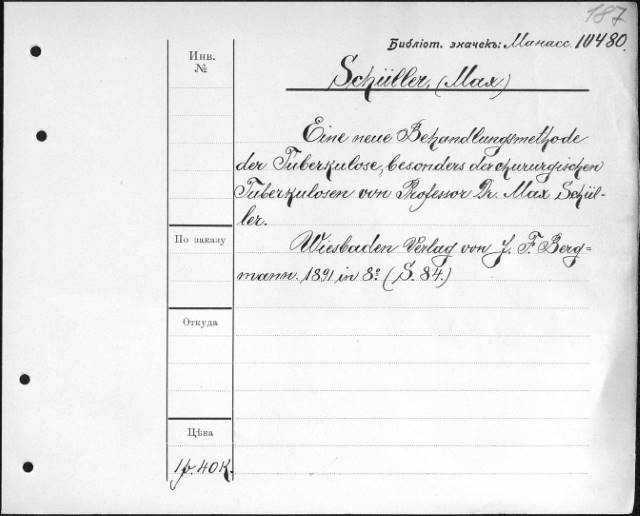 187
Библіот. значекъ: Манасс. 10480.
Инв.
№
Schüller, (Max)
Eine neue Behandlungsmethode
der Tuberkulose, besonders der chirurgischen
Tuberkulosen von Professor Dr. Max Schül-
ler.
По заказу
Wiesbaden Verlag von J. F. Berg=
mann. 1891 in 8º (S. 84.)
Откуда
Цѣна
1 р. 40 к.